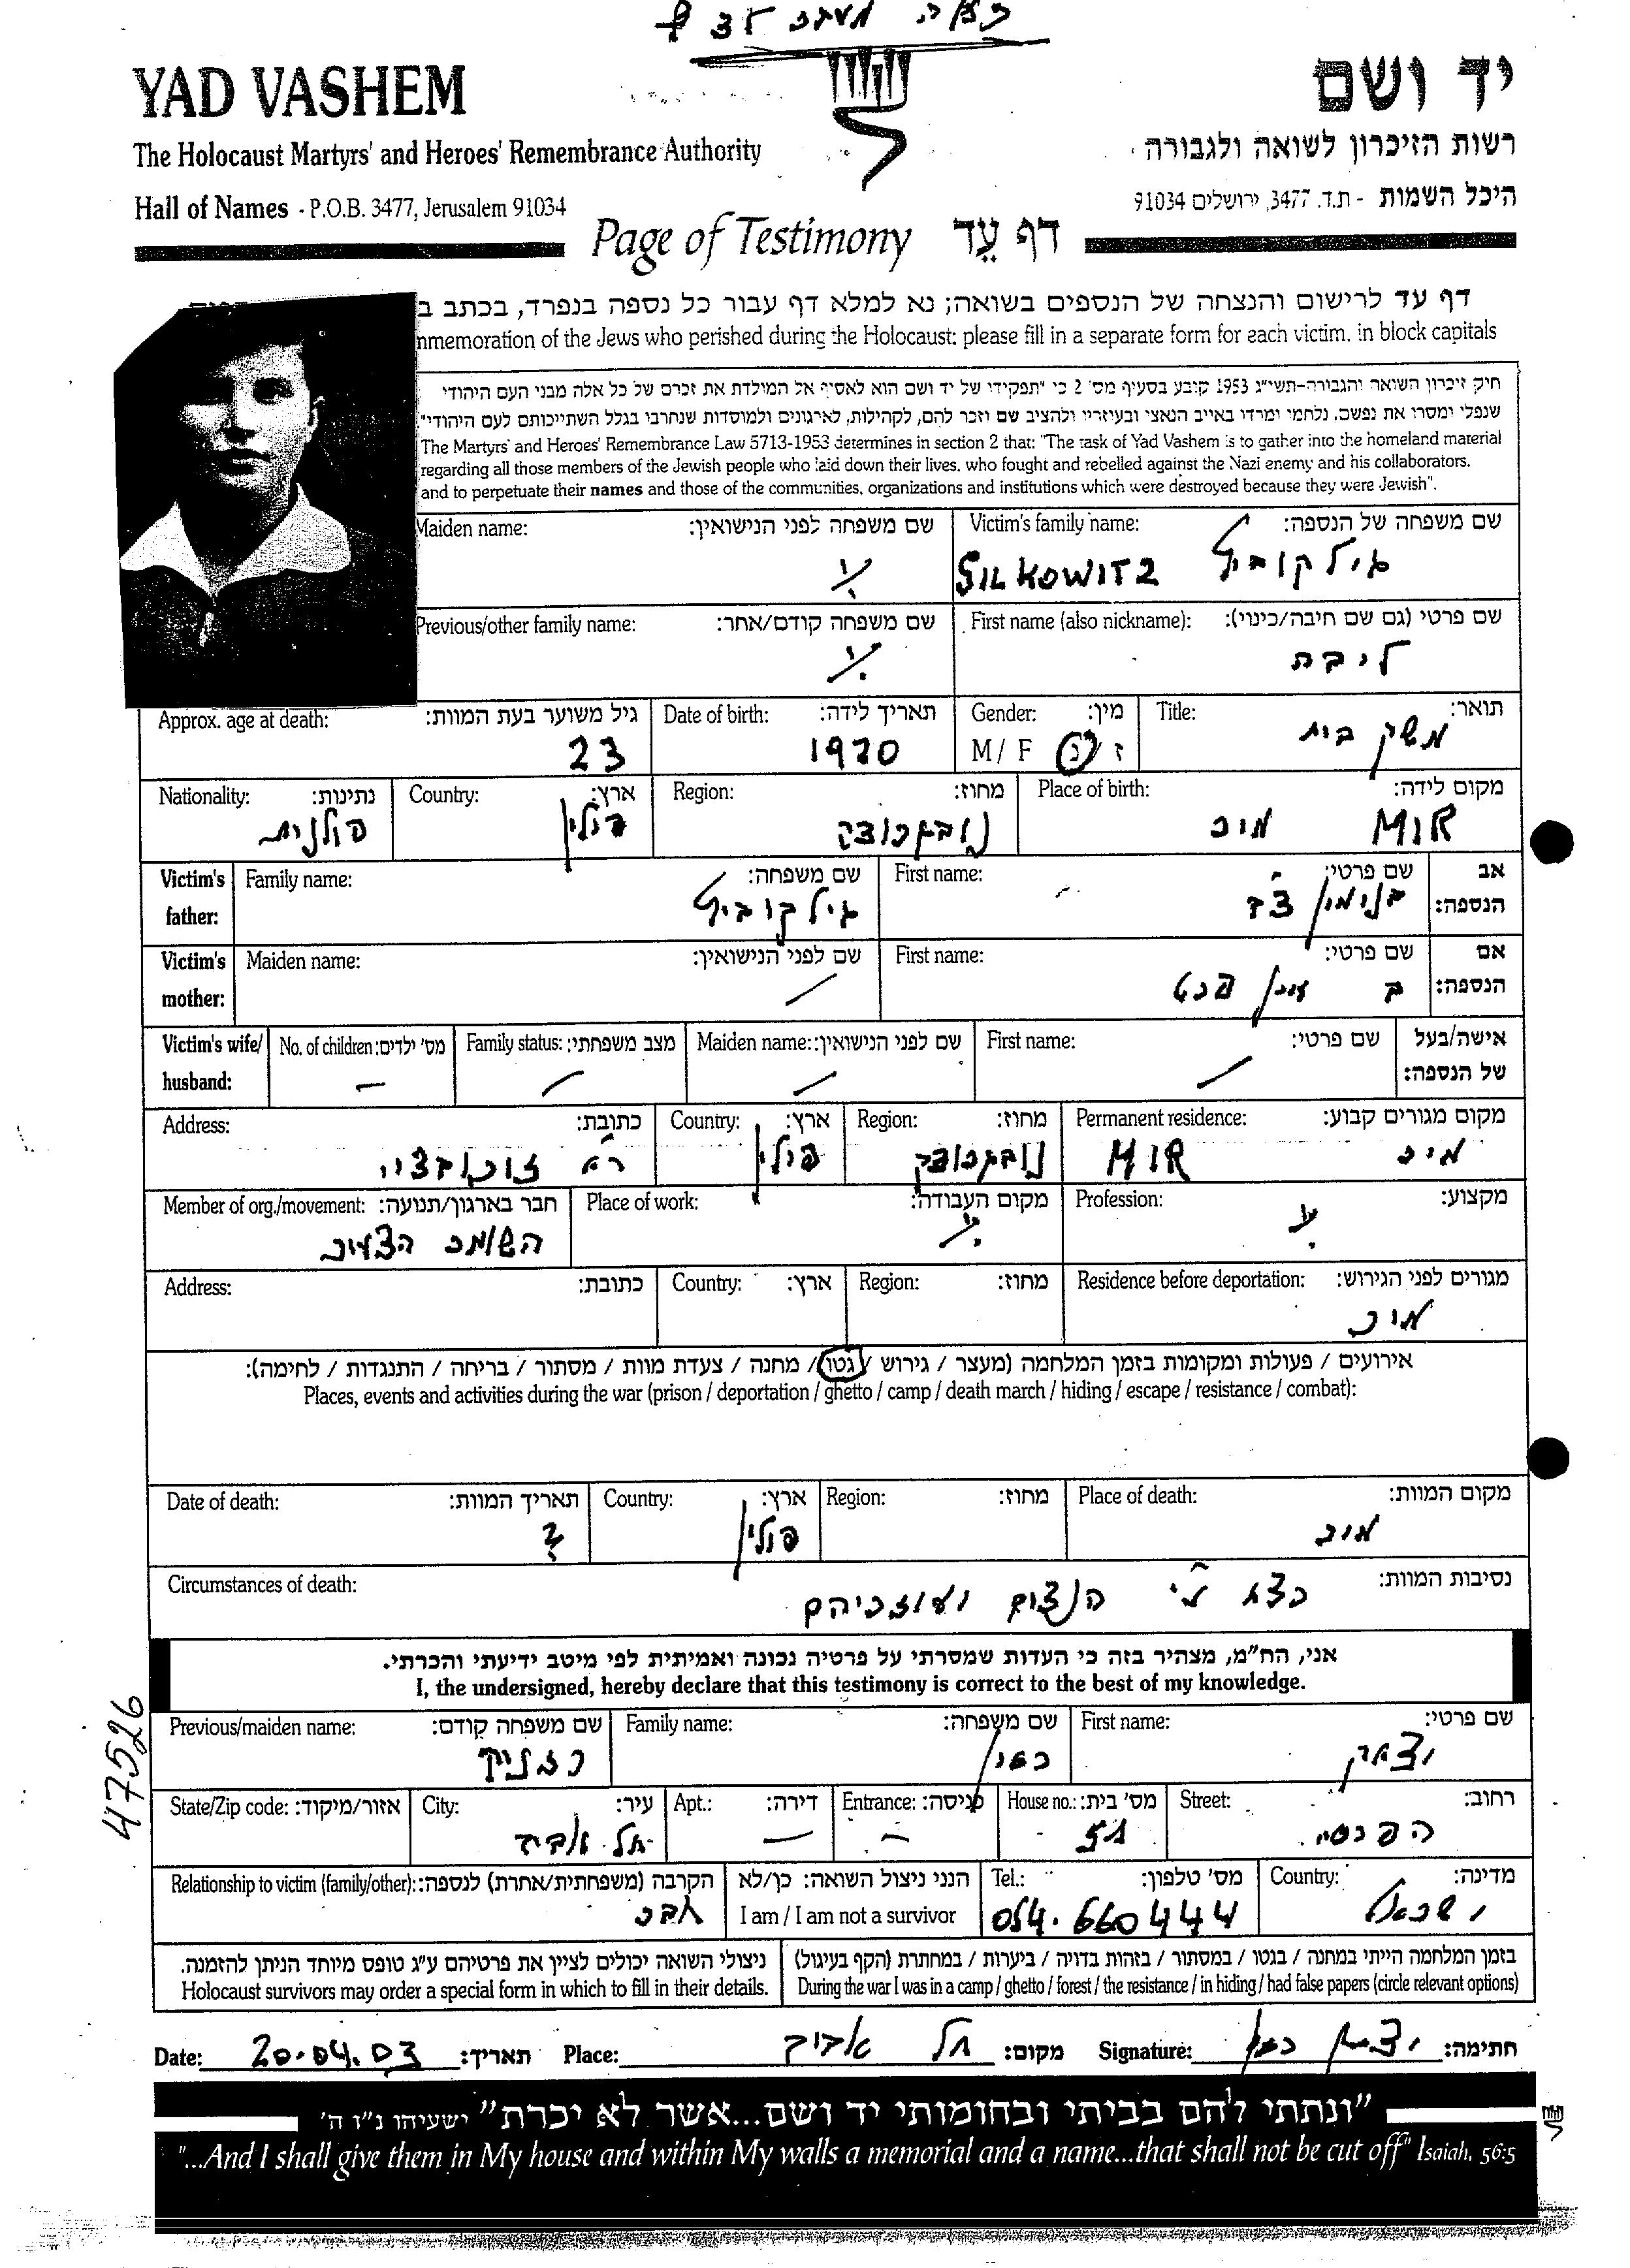 YAD VASHEM
יד ושם
The Holocaust Martyrs' and Heroes' Remembrance Authority
רשות הזיכרון לשואה ולגבורה
Hall of Names - P.O.B. 3477, Jerusalem 91034
היכל השמות - ת.ד. 3477, ירושלים 91034
Page of Testimony דף עֵד
דף עד לרישום והנצחה של הנספים בשואה; נא למלא דף עבור כל נספה בנפרד, בכתב
commemoration of the Jews who perished during the Holocaust; please fill in a separate form for each victim, in block capitals
חוק זיכרון השואה והגבורה-תשי"ג 1953 קובע בסעיף מס' 2 כי "תפקידו של יד ושם הוא לאסוף אל המולדת את זכרם של כל אלה מבני העם היהודי
שנפלו ומסרו את נפשם, נלחמו ומרדו באויב הנאצי ובעוזריו ולהציב שם וזכר להם, לקהילות, לארגונים ולמוסדות שנחרבו בגלל השתייכותם לעם היהודי".
The Martyrs' and Heroes' Remembrance Law 5713-1953 determines in section 2 that: "The task of Yad Vashem is to gather into the homeland material
regarding all those members of the Jewish people who laid down their lives, who fought and rebelled against the Nazi enemy and his collaborators,
and to perpetuate their names and those of the communities, organizations and institutions which were destroyed because they were Jewish".
Maiden name: שם משפחה לפני הנישואין: Victim's family name: שם משפחה של הנספה:
SILKOWITZ
Previous/other family name: שם משפחה קודם/אחר: First name (also nickname): שם פרטי (גם שם חיבה/כינוי):
ליבה
Approx. age at death: גיל משוער בעת המוות: Date of birth: תאריך לידה: Gender: מין: Title: תואר:
23 1920 M / F ז / נ משק בית
Nationality: נתינות: Country: ארץ: Region: מחוז: Place of birth: מקום לידה:
פולנית פולין נובגרודק מיר MIR
Victim's father: Family name: שם משפחה: First name: שם פרטי: אב הנספה:
Victim's mother: Maiden name: שם לפני הנישואין: First name: שם פרטי: אם הנספה:
Victim's wife/ husband: No. of children: מס' ילדים: Family status: מצב משפחתי: Maiden name: שם לפני הנישואין: First name: שם פרטי: אישה/בעל של הנספה:
Address: כתובת: Country: ארץ: Region: מחוז: Permanent residence: מקום מגורים קבוע:
פולין נובגרודק MIR מיר
Member of org./movement: חבר בארגון/תנועה: Place of work: מקום העבודה: Profession: מקצוע:
השומר הצעיר
Address: כתובת: Country: ארץ: Region: מחוז: Residence before deportation: מגורים לפני הגירוש:
מיר
אירועים / פעולות ומקומות בזמן המלחמה (מעצר / גירוש / גטו / מחנה / צעדת מוות / מסתור / בריחה / התנגדות / לחימה):
Places, events and activities during the war (prison / deportation / ghetto / camp / death march / hiding / escape / resistance / combat):
Date of death: תאריך המוות: Country: ארץ: Region: מחוז: Place of death: מקום המוות:
פולין מיר
Circumstances of death: נסיבות המוות:
נרצח ע"י הנצים ועוזריהם
אני, הח"מ, מצהיר בזה כי העדות שמסרתי על פרטיה נכונה ואמיתית לפי מיטב ידיעתי והכרתי.
I, the undersigned, hereby declare that this testimony is correct to the best of my knowledge.
47526
Previous/maiden name: שם משפחה קודם: Family name: שם משפחה: First name: שם פרטי:
רזניק יצחק
State/Zip code: אזור/מיקוד: City: עיר: Apt.: דירה: Entrance: כניסה: House no.: מס' בית: Street: רחוב:
תל אביב
Relationship to victim (family/other): הקרבה (משפחתית/אחרת) לנספה: הנני ניצול השואה: כן/לא Tel.: מס' טלפון: Country: מדינה:
I am / I am not a survivor 054.660444 ישראל
ניצולי השואה יכולים לציין את פרטיהם ע"ג טופס מיוחד הניתן להזמנה. בזמן המלחמה הייתי במחנה / בגטו / במסתור / בזהות בדויה / ביערות / במחתרת (הקף בעיגול)
Holocaust survivors may order a special form in which to fill in their details. During the war I was in a camp / ghetto / forest / the resistance / in hiding / had false papers (circle relevant options)
Date: 20.04.03 תאריך: Place: תל אביב מקום: Signature: חתימה:
"ונתתי להם בביתי ובחומותי יד ושם...אשר לא יכרת" ישעיהו נ"ו ה'
"...And I shall give them in My house and within My walls a memorial and a name...that shall not be cut off" Isaiah, 56:5